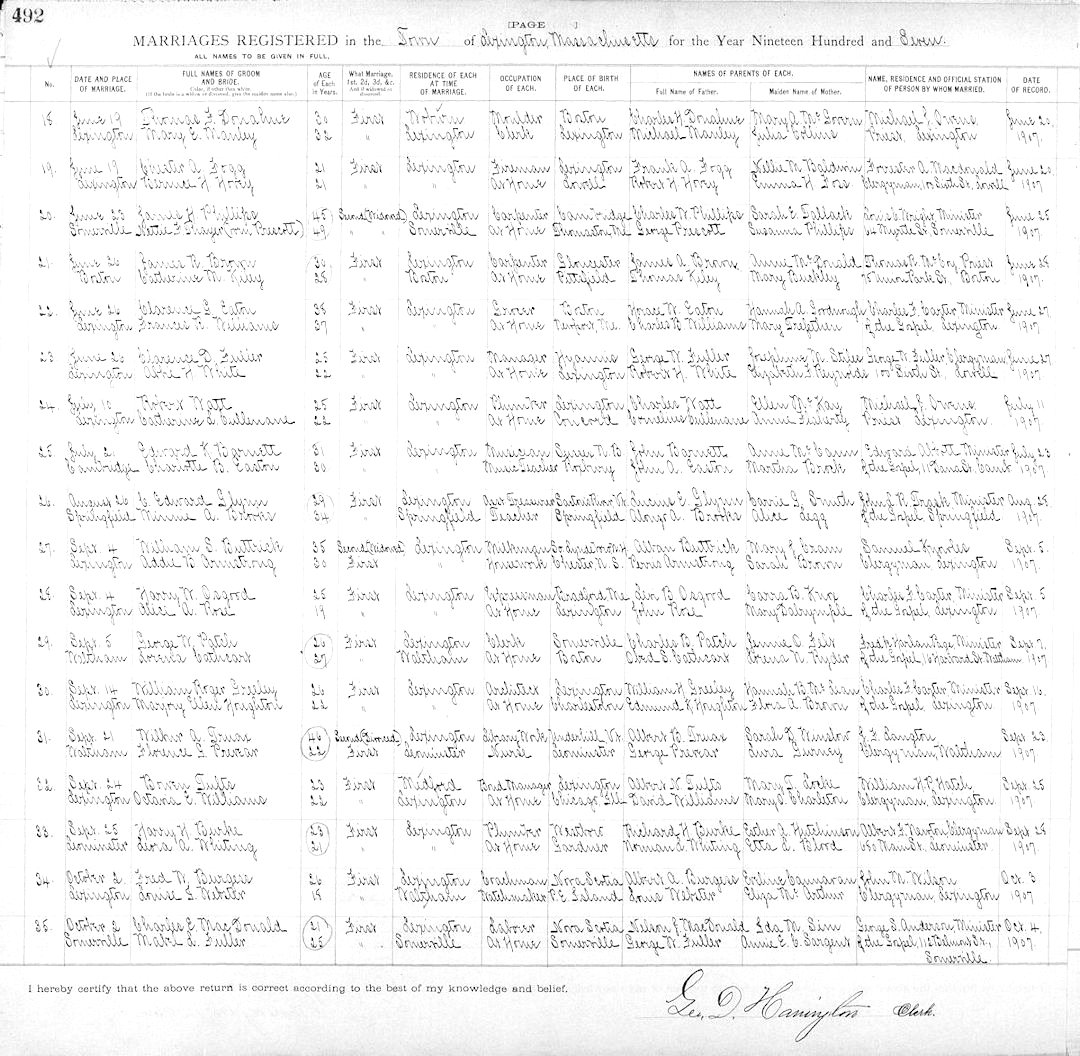 492
[PAGE ]
MARRIAGES REGISTERED in the Town of Lexington, Massachusetts for the Year Nineteen Hundred and Seven.
ALL NAMES TO BE GIVEN IN FULL.
No. DATE AND PLACE OF MARRIAGE. FULL NAMES OF GROOM AND BRIDE. AGE of Each in Years. What Marriage, 1st, 2d, 3d, &c. RESIDENCE OF EACH AT TIME OF MARRIAGE. OCCUPATION OF EACH. PLACE OF BIRTH OF EACH. NAMES OF PARENTS OF EACH. Full Name of Father. Maiden Name of Mother. NAME, RESIDENCE AND OFFICIAL STATION OF PERSON BY WHOM MARRIED. DATE OF RECORD.
18. June 19 Thomas F. Donahue 30 First Woburn Moulder Boston Charles H. Donahue Michael J. Owens June 20
Lexington Mary E. Manley 32 " Lexington Clerk Lexington Michael Manley Julia Priest, Lexington 1907.
19. June 19 Chester A. Fogg 21 First Lexington Fireman Lexington Frank A. Fogg Nellie M. Baldwin Forrester A. Macdonald June 20
Lexington Bernice H. 21 " " At Home Lowell Robert H. Emma H. Clergyman, Lowell 1907
20. June 23 James H. Phillips 45 Second (Widowed) Lexington Carpenter Cambridge Charles W. Phillips Sarah E. Tallack Louis C. Wright, Minister June 25
Somerville Nettie F. Thayer (von Prescott) 49 " " Somerville At Home Thomaston Me George Prescott Susanna Phillips 64 Myrtle St. Somerville 1907.
21. June 26 James R. Brown 30 First Lexington Carpenter Gloucester James A. Brown Annie McDonald Thomas R. McCoy Priest June 28
Boston Catharine M. Kiley 28 " Boston At Home Pittsfield Thomas Kiley Mary Buckley Union Park St, Boston 1907.
22. June 26 Clarence G. Eaton 38 First Lexington Grocer Boston Horace W. Eaton Hannah A. Charles F. Carter Minister June 27
Lexington Frances B. Williams 37 " " At Home Newport, Me. Charles B. Williams Mary Trefethen of the Gospel Lexington 1907
23 June 26 Clarence D. Fuller 25 First Lexington Manager Hyannis George W. Fuller Josephine M. Stiles George W. Fuller Clergyman June 27
Lexington Abbie H. White 22 " " At Home Lexington Robert H. White Elizabeth F. Reynolds Sixth St, Lowell 1907.
24. July 10 Robert Watt 25 First Lexington Plumber Lexington Charles Watt Ellen McKay Michael J. Owens July 11
Lexington Catharine E. Cullenane 22 " " At Home Concord Cornelius Cullenane Annie Flaherty Priest Lexington. 1907.
25. July 21 Edward K. Barnett 31 First Lexington Musician N.B. John Barnett Anne McCann Edward Abbott Minister July 23
Cambridge Charlotte B. Easton 30 " " Music Teacher Roxbury John A. Easton Martha Brock of the Gospel, 1907
26. August 20 C. Edward Glynn 29 First Lexington Asst Treasurer Lucius E. Glynn Carrie G. Smith John L. R. Trask Minister Aug. 28
Springfield Minnie A. Brooks 34 " Springfield Teacher Springfield Alonzo A. Brooks Alice Legg of the Gospel Springfield 1907.
27. Sept. 4 William S. Buttrick 35 Second (Widowed) Lexington Milkman Alban Buttrick Mary J. Cram Samuel Knowles Sept. 5.
Lexington Addie B. Armstrong 30 First " Housework Chester N.S. Armstrong Sarah Brown Clergyman Lexington 1907.
28. Sept. 4 Harry W. Osgood 25 First Lexington Expressman Bradford Me B. Osgood B. Charles F. Carter Minister Sept. 5
Lexington Alice A. Rose 19 " " At Home Lexington John Rose Mary Dalrymple of the Gospel, Lexington 1907.
29. Sept. 5 George W. Patch 26 First Lexington Clerk Somerville Charles B. Patch Jennie O. Felt Minister Sept. 7,
Waltham Luella Cathcart 27 " Waltham At Home Boston Obed S. Cathcart N. Ryder of the Gospel, Harvard St Waltham 1907
30. Sept. 14 William Roger Greeley 26 First Lexington Architect Lexington William H. Greeley Hannah B. McLean Charles F. Carter Minister Sept. 16.
Lexington Marjory Ellen Houghton 22 " " At Home Charlestown Edmund K. Houghton Flora A. Brown of the Gospel Lexington. 1907
31. Sept. 21 Wilbur A. Truax 46 Second (Divorced) Lexington Library Work Underhill Vt. Albert B. Truax Sarah K. Winslow J. F. Langton Sept. 23
Waltham Florence G. 22 First Leominster Nurse Leominster George Lura Gurney Clergyman, Waltham 1907
32. Sept. 24 Bowen Tufts 23 First Medford Bond Manager Lexington Albert N. Tufts Mary T. Locke William H. P. Hatch Sept. 25
Lexington Octavia E. Williams 22 " Lexington At Home Chicago Ill. David Williams Mary S. Charlton Clergyman, Lexington 1907.
33. Sept. 25 Harry H. Burke 23 First Lexington Plumber Westboro Richard H. Burke Esther J. Hutchinson Albert F. Newton, Clergyman Sept 28
Leominster Lora A. Whiting 21 " " At Home Gardner Norman L. Whiting Etta L. Blood Main St. Leominster 1907
34. October 2 Fred W. Burgess 26 First Lexington Coachman Nova Scotia Albert A. Burgess John M. Wilson Oct. 3
Lexington G. Webster 18 " Waltham Watchmaker P.E. Island Louis Webster Eliza McArthur Clergyman, Lexington 1907.
35. October 2 Charles E. MacDonald 21 First Lexington Laborer Nova Scotia Nelson J. MacDonald Ida M. Sim George S. Anderson, Minister Oct. 4,
Somerville Mabel L. Fuller 25 " Somerville At Home Somerville George W. Fuller Annie E. C. Sargent of the Gospel, Belmont St., 1907.
Somerville.
I hereby certify that the above return is correct according to the best of my knowledge and belief.
Geo. D. Harrington Clerk.